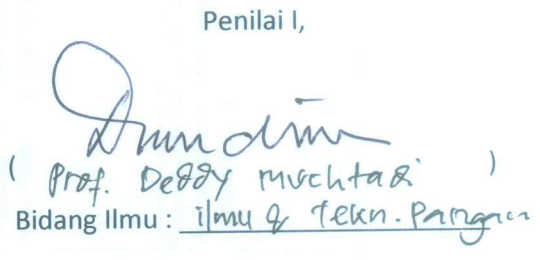 Penilai I,
( Prof. Deddy Muchtadi )
Bidang Ilmu : ilmu & Tekn. Pangan